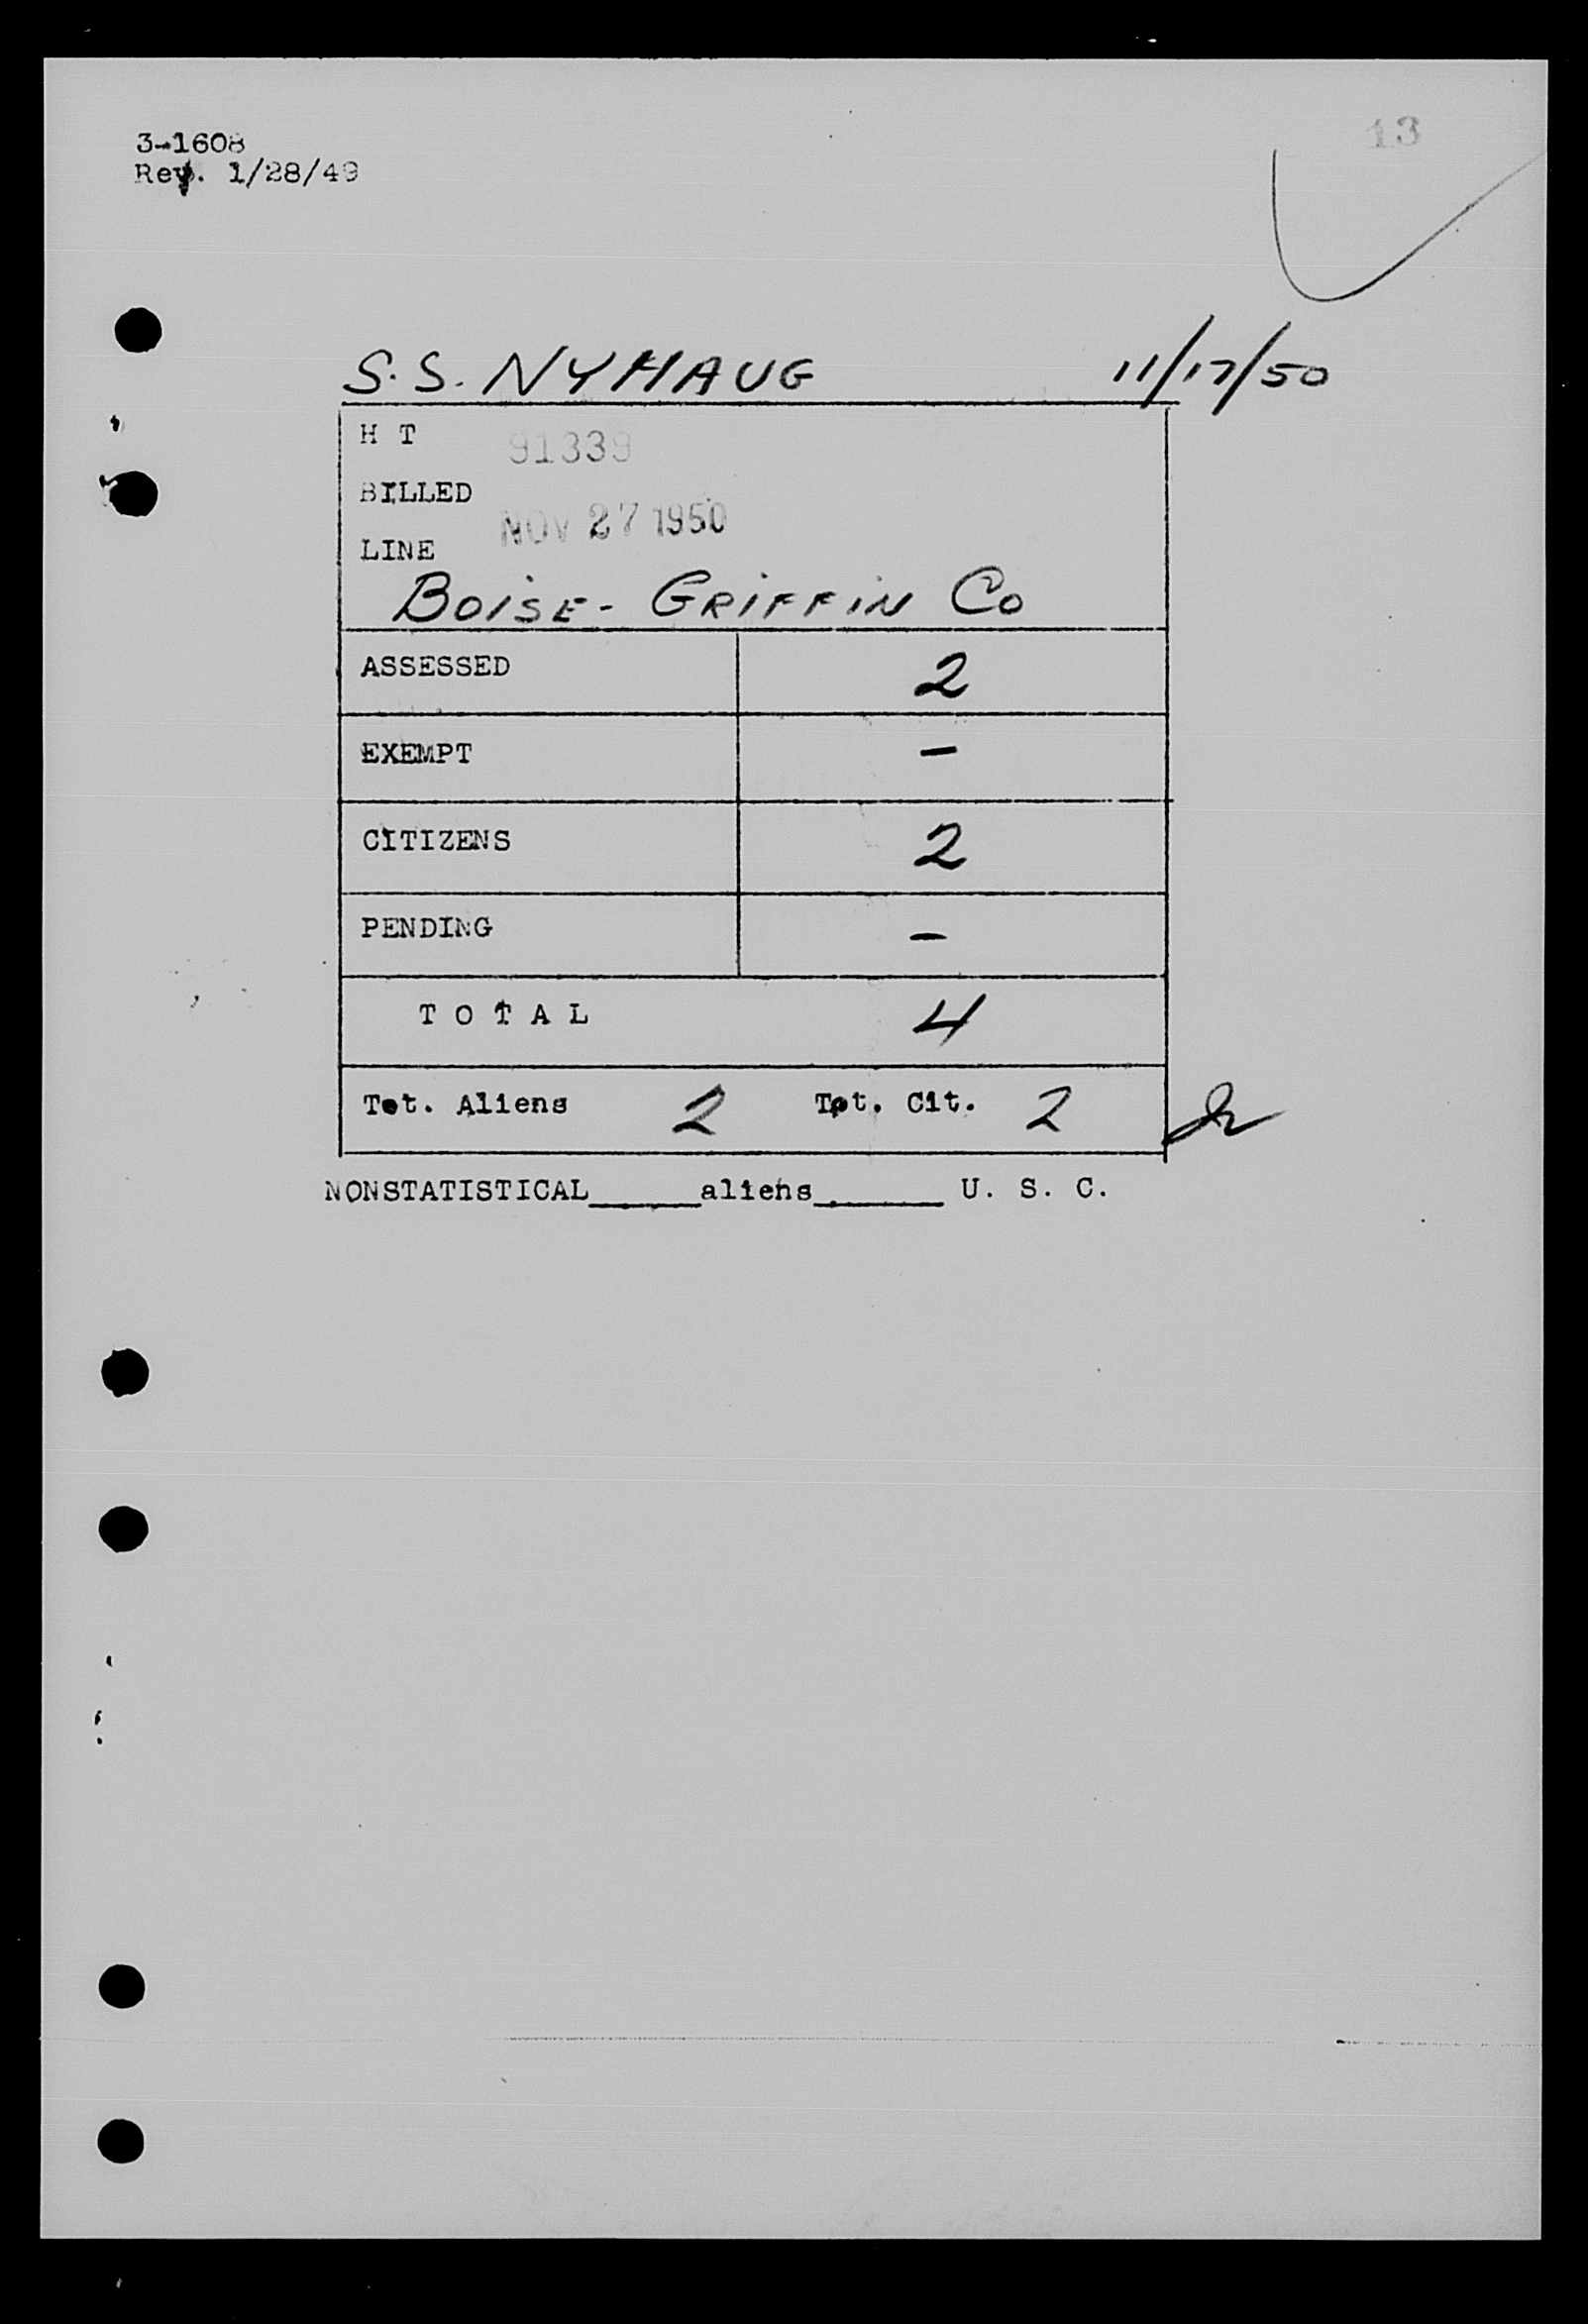 13
3-1608
Rev. 1/28/49
S.S. NYHAUG 11/17/50
H T 91339
BILLED
NOV 27 1950
LINE
BOISE - GRIFFIN CO
ASSESSED 2
EXEMPT –
CITIZENS 2
PENDING –
T O T A L 4
Tot. Aliens 2 Tot. Cit. 2
NONSTATISTICAL______aliens_______ U. S. C.